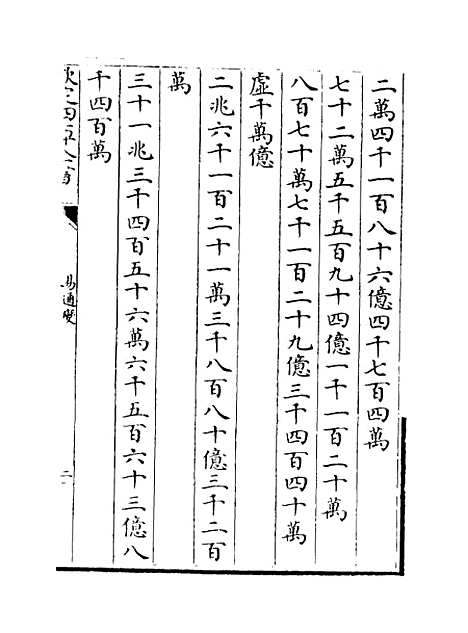 二萬四千一百八十六億四千七百四萬
七十二萬五千五百九十四億一千一百二十萬
八百七十萬七千一百二十九億三千四百四十萬
虛千萬億
二兆六千一百二十一萬三千八百八十億三千二百
萬
三十一兆三千四百五十六萬六千五百六十三億八
千四百萬
欽定四庫全書
易通變